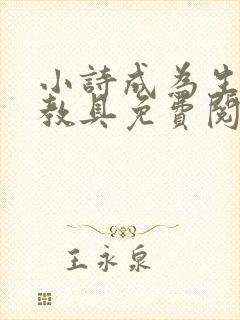 小詩成為生
教具免費閱
王永泉